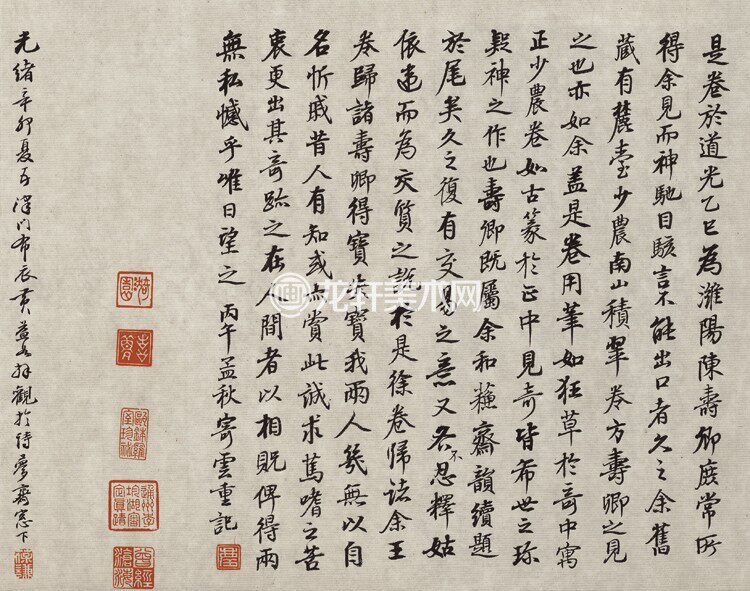 是卷於道光乙巳為濰陽陳壽卿庶常所
得余見而神馳目駭言不能出口者久之余舊
藏有麓臺少農南山積翠卷方壽卿之見
之也亦如余蓋是卷用筆如狂草於奇中寓
正少農卷如古篆於正中見奇皆希世之珍
疑神之作也壽卿既屬余和蘓齋韻續題
於尾矣久之復有交易之意又各不忍釋姑
依違而為交質之說於是徐卷歸諸余王
卷歸諸壽卿得寶失寶我兩人幾無以自
名忻戚昔人有知或亦賞此誠求篤嗜之苦
衷更出其奇跡之在人間者以相貺俾得兩
無私憾乎唯日望之 丙午孟秋寄雲重記
光緒辛卯夏五 門布衣黃 觀於待 齋窓下
曾經滄海
龙轩美术网